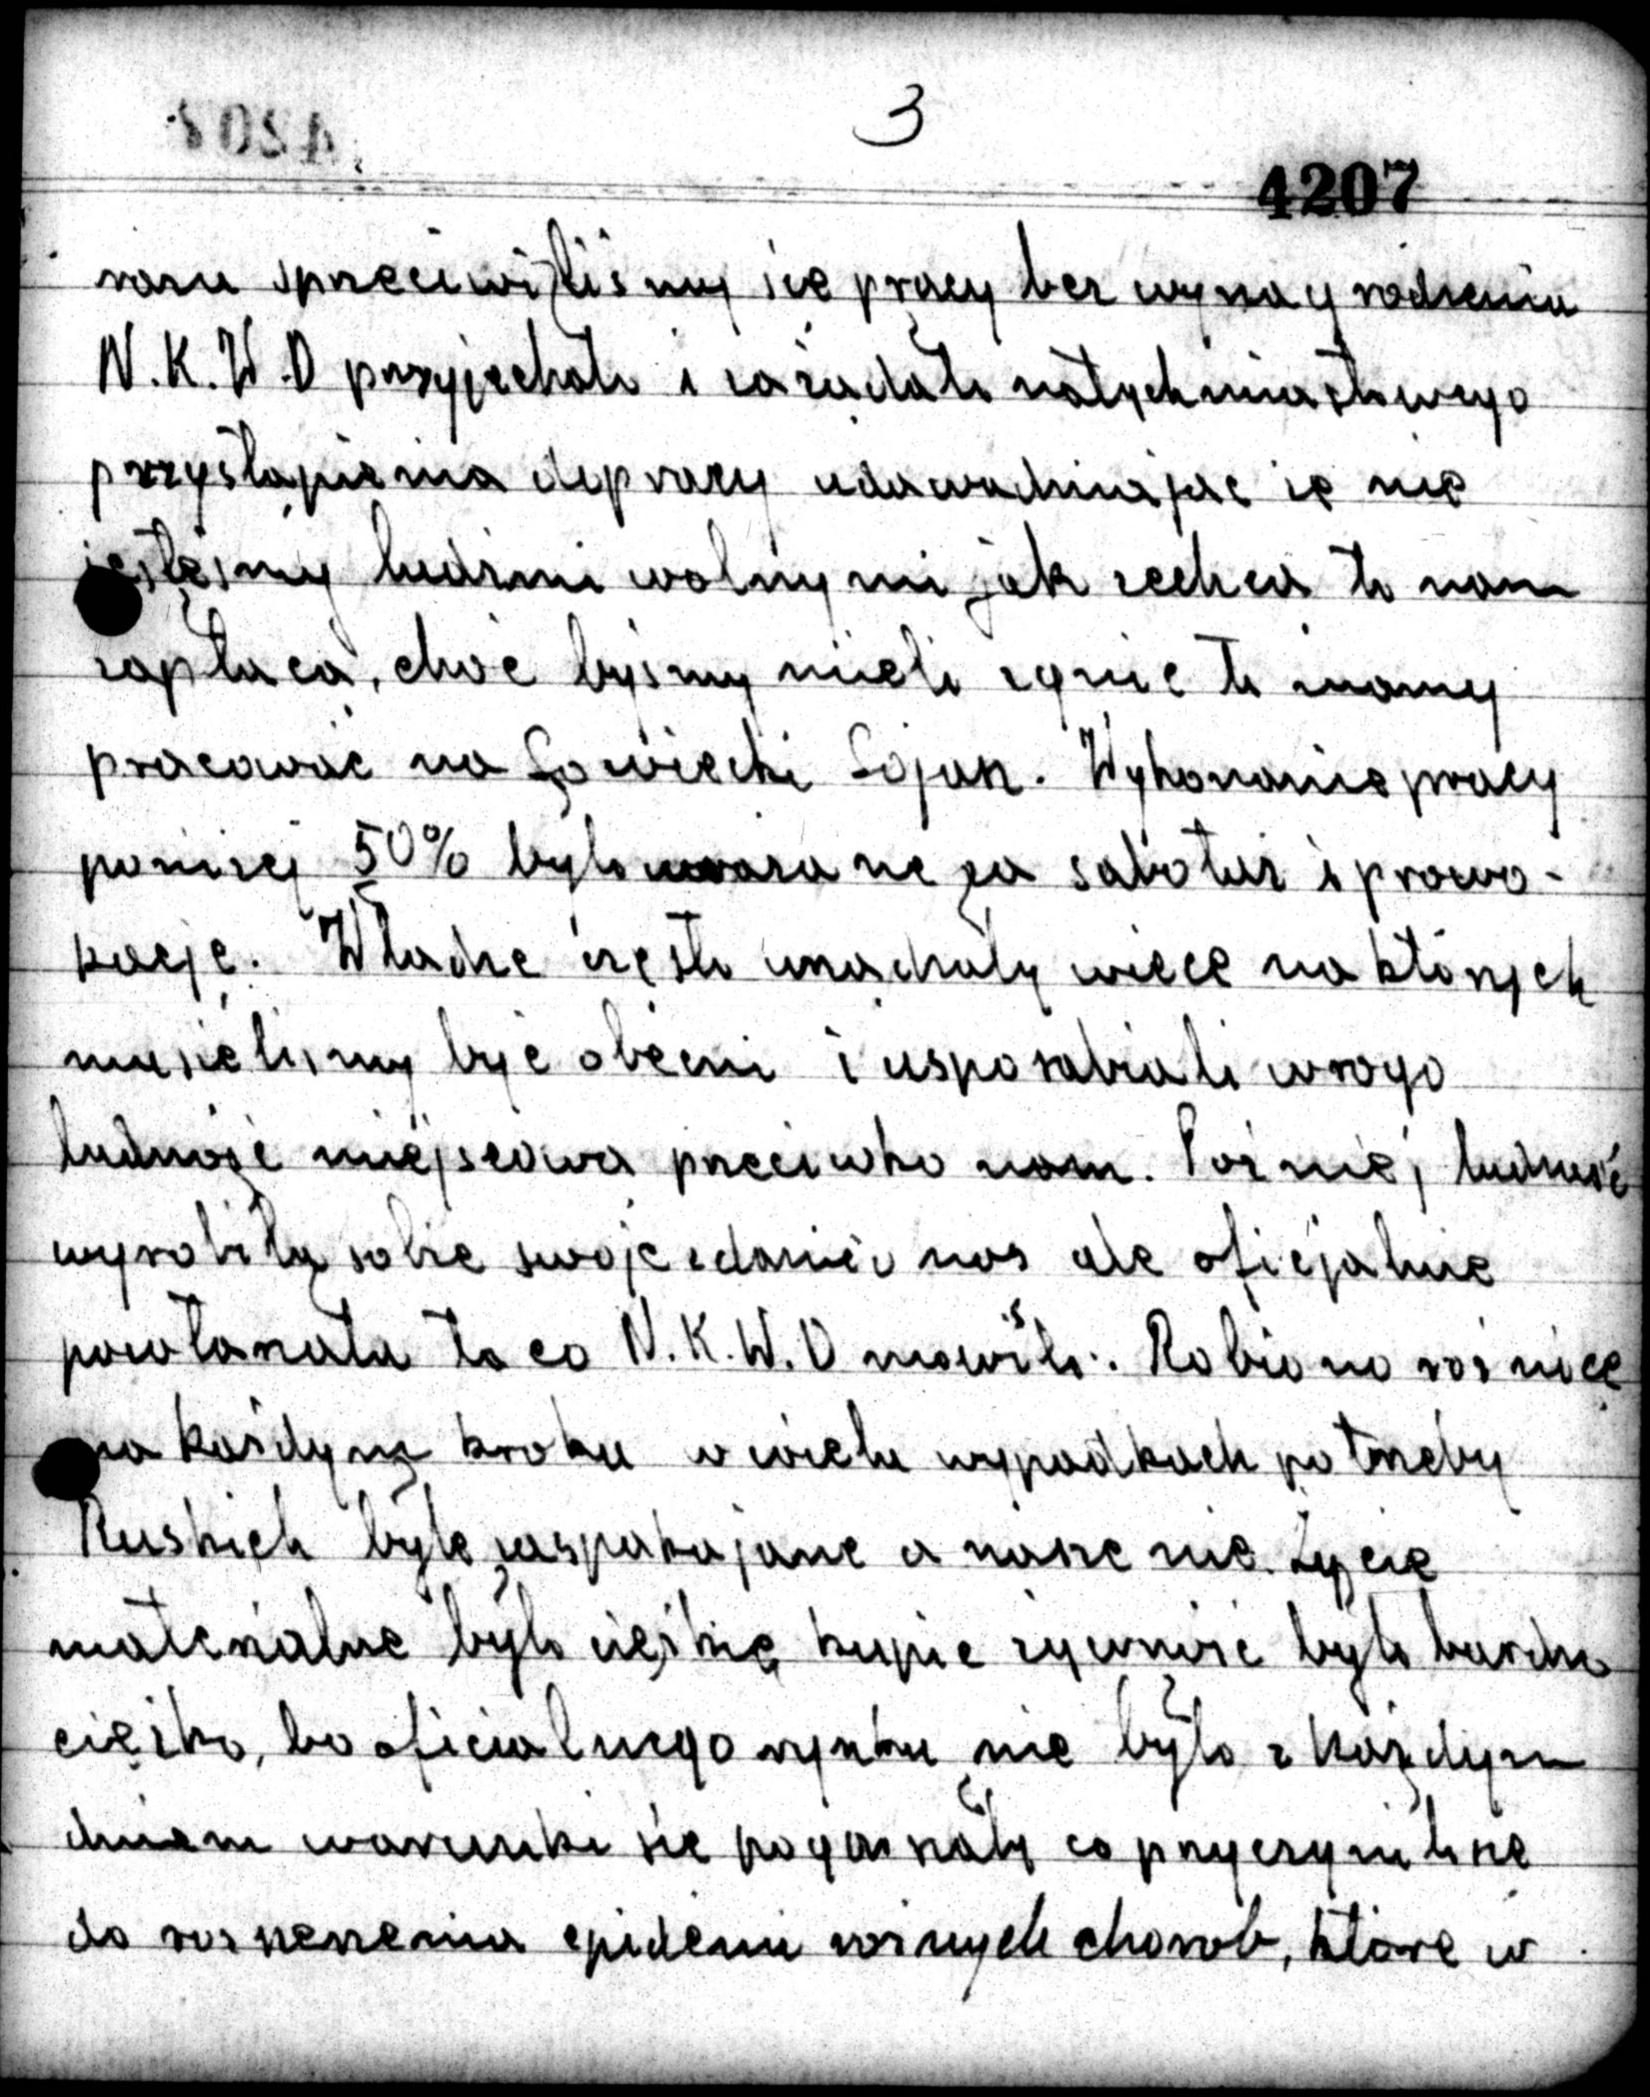 3
4207
razu sprzeciwiliśmy sie pracy bez wynagrodzenia
N.K.W.D przyjechali i zarządali natychmiastowego
przystąpienia do pracy udawadniając ze nie
jesteśmy ludzmi wolnymi jak zechcą to nam
zapłacą, choć byśmy mieli zginić to mamy
pracować na Sowiecki Sojuz. Wykonanie pracy
poniżej 50% było uważane za sabotaż i prowo-
kację. Władze często urządzały wiece na których
musieliśmy być obecni i usposabiali wrogo
ludność miejscową przeciwko nam. Poźniej ludność
wyrobiła sobie swoje zdanie o nas ale oficjalnie
powtarzała to co N.K.W.D mowili. Robiono rożnice
na każdym kroku w wielu wypadkach potrzeby
Ruskich byle zaspakajane a nasze nie. Życie
materialne było ciężkie kupić żywność było bardzo
ciężko, bo oficialnego rynku nie było z każdym
dniem warunki sie pogarszały co przyczyniło sie
do rozszerzenia epidemi rożnych chorob, które w